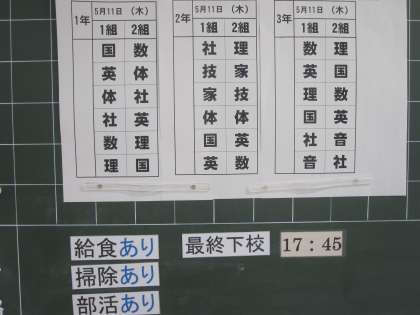 1年 5月11日 (木)
1組 2組
国 数
英 体
体 社
社 英
数 理
理 国
2年 5月11日 (木)
1組 2組
社 理
技 家
家 技
体 体
国 英
英 数
3年 5月11日 (木)
1組 2組
数 理
英 国
理 数
国 英
社 音
音 社
給食あり 最終下校 17:45
掃除あり
部活あり